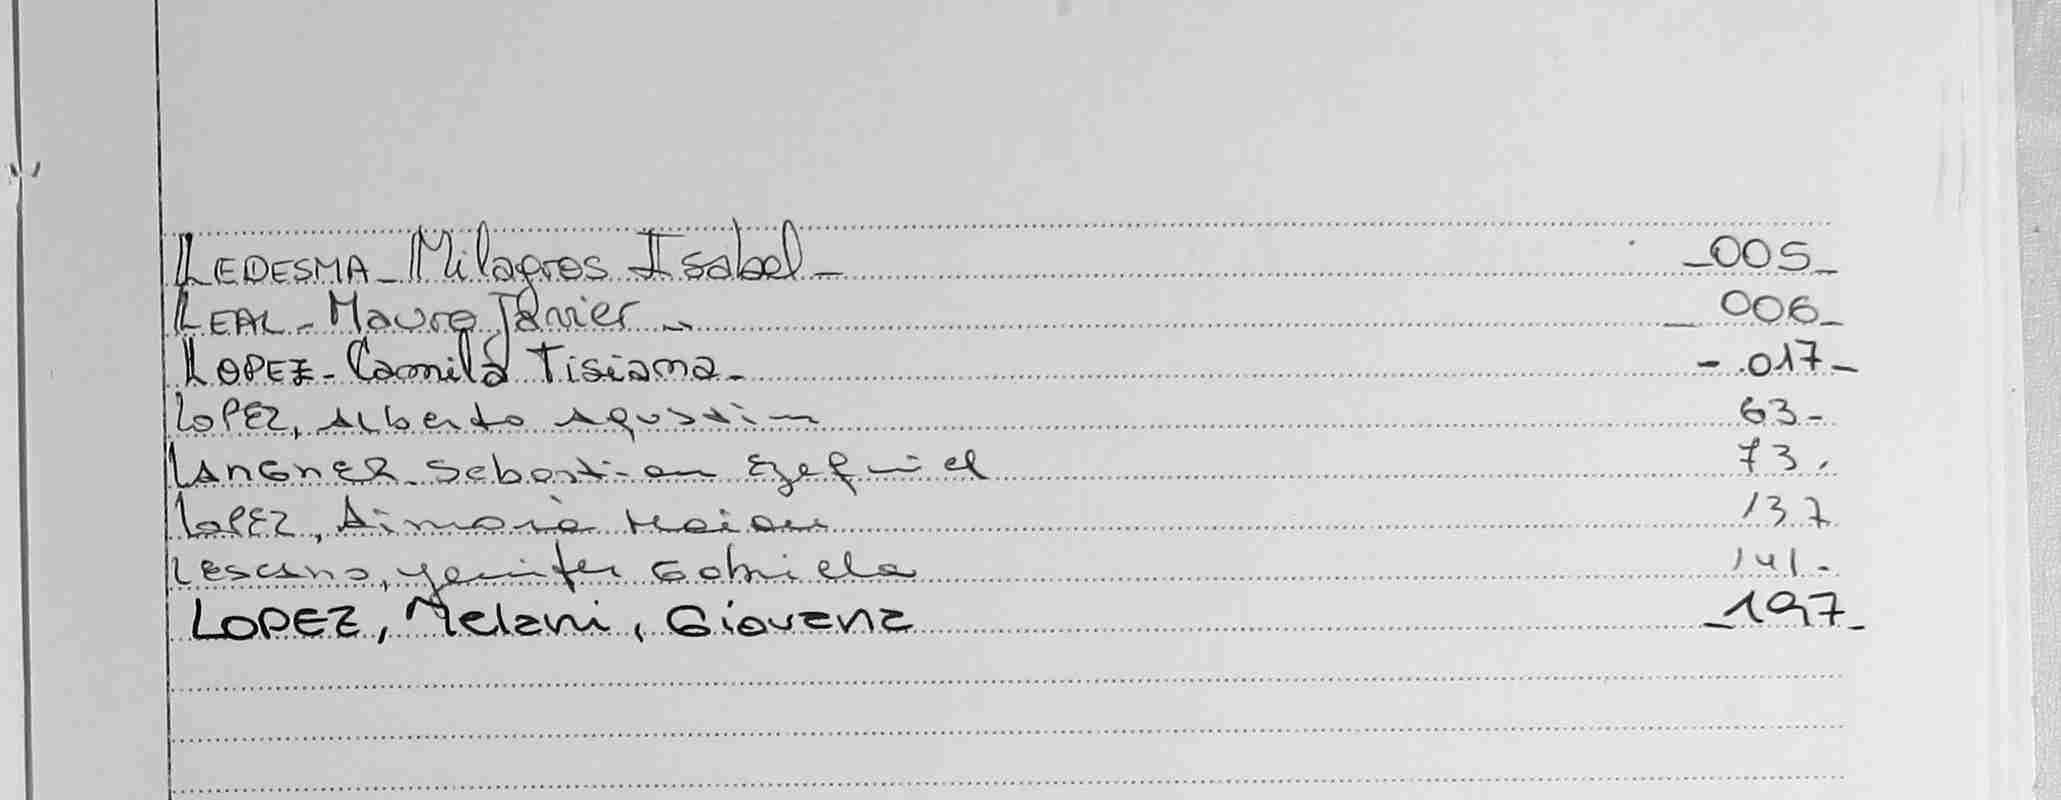 LEDESMA - Milagros Isabel - _005_
LEAL - Mauro Javier - _ 006_
LOPEZ - Camila Tisiana - - 017 -
LOPEZ, Alberto Agustin 63 -
LANGNER - Sebastian Ezequiel 73.
LOPEZ, 137
Lescano, Yenifer Gabriela 141 -
LOPEZ, Melani, Giovana _197_